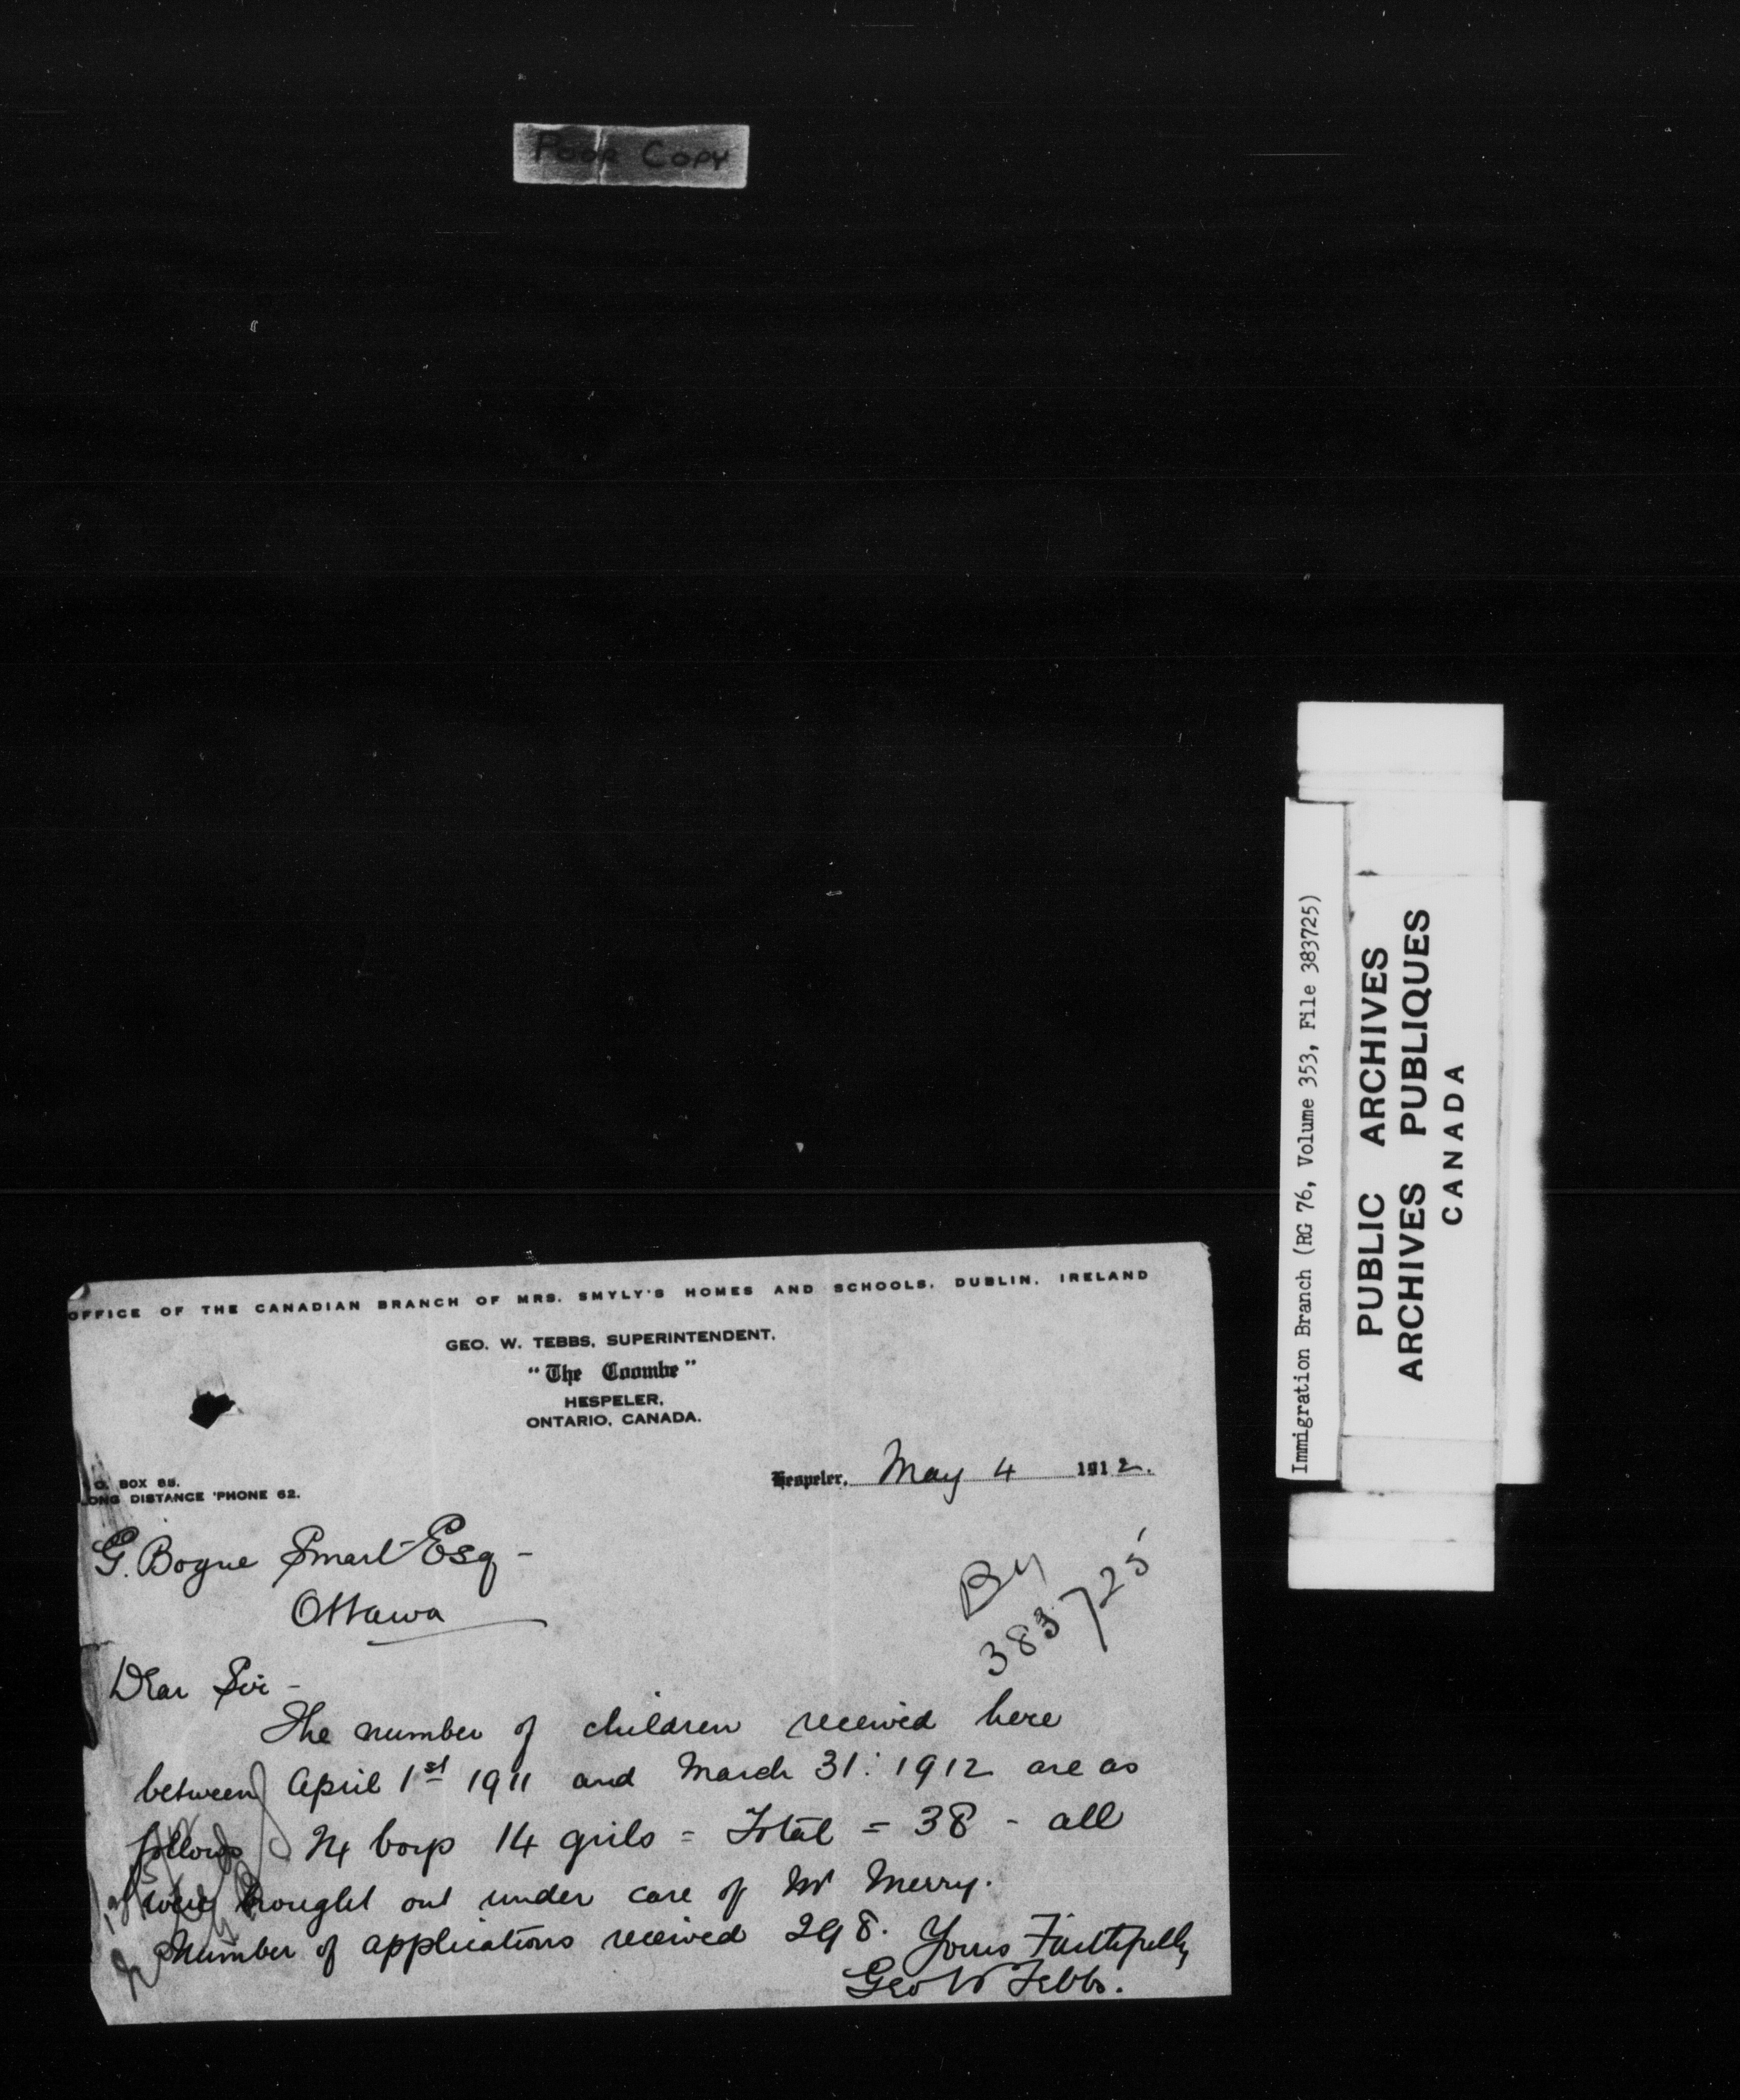 POOR COPY
OFFICE OF THE CANADIAN BRANCH OF MRS. SMYLY'S HOMES AND SCHOOLS, DUBLIN, IRELAND
GEO. W. TEBBS, SUPERINTENDENT.
"The Coombe"
HESPELER,
ONTARIO, CANADA.
O. BOX 65.
LONG DISTANCE 'PHONE 62.
Hespeler, May 4 1912.
G. Bogue Smart Esq -
Ottawa
383725
Dear Sir -
The number of children received here
between April 1st 1911 and March 31: 1912 are as
follows 24 boys 14 girls = Total = 38 - all
were brought out under care of Mr Merry.
Number of applications received 298. Yours Faithfully
Geo W Tebbs.
Immigration Branch (RG 76, Volume 353, File 383725)
PUBLIC ARCHIVES
ARCHIVES PUBLIQUES
CANADA